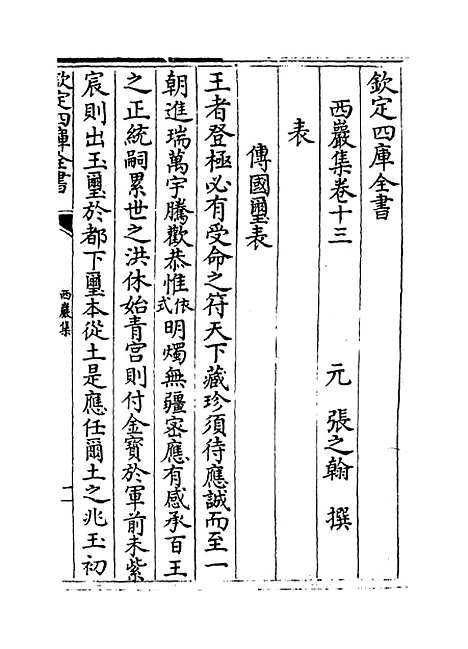 欽定四庫全書
西巖集卷十三
元　張之翰　撰
表
傳國璽表
王者登極必有受命之符天下藏珍須待應誠而至一
朝進瑞萬宇騰歡恭惟依式明燭無疆宻應有感承百王
之正統嗣累世之洪休始青宮則付金寳於軍前未紫
宸則出玉璽於都下璽本從土是應任爾土之兆玉初
欽定四庫全書
西巖集